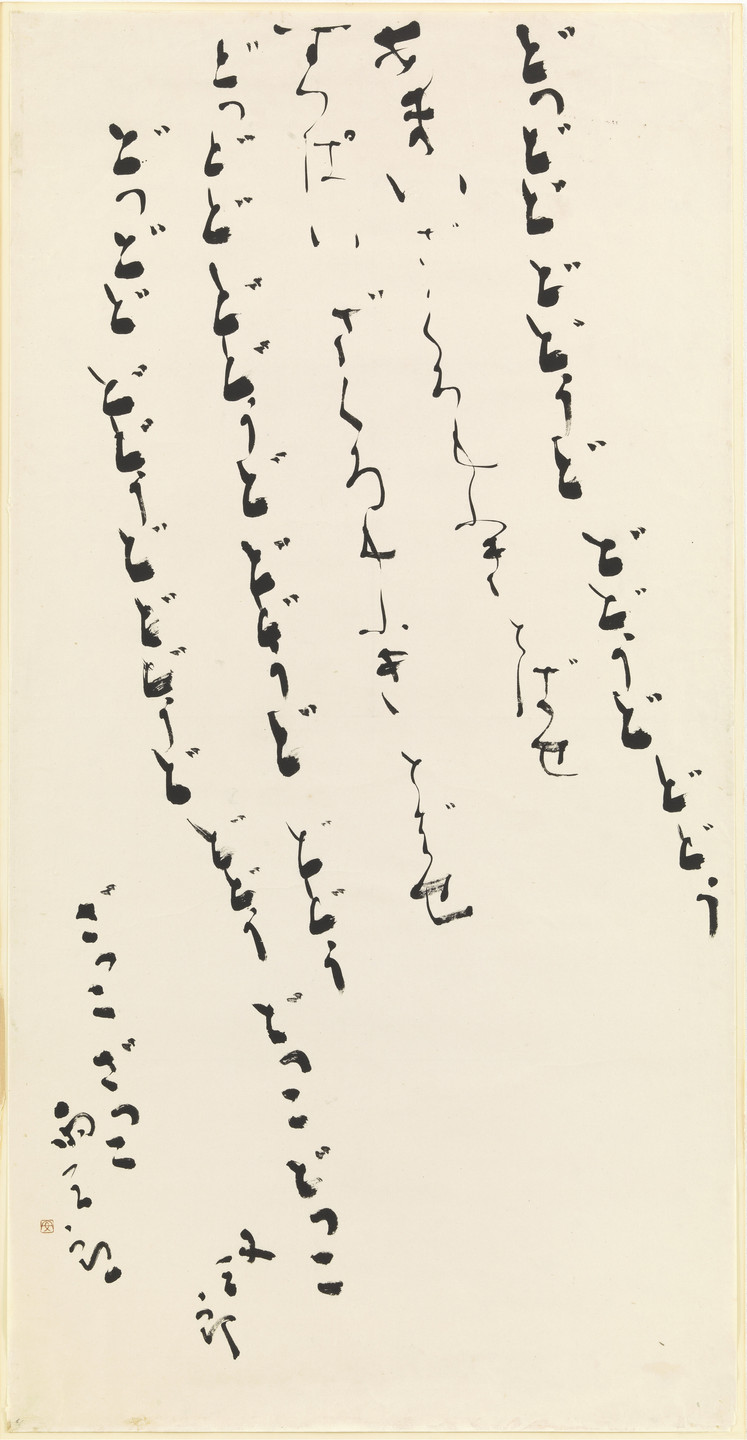 どつどど どどうど どどうど どどう
あまいざくろもふきとばせ
すつぱいざくろもふきとばせ
どつどど どどうど どどうど どどう
どつどど どどうど どどうど どどう
どつこどつこ
又三郎
ざつこざつこ
雨三郎